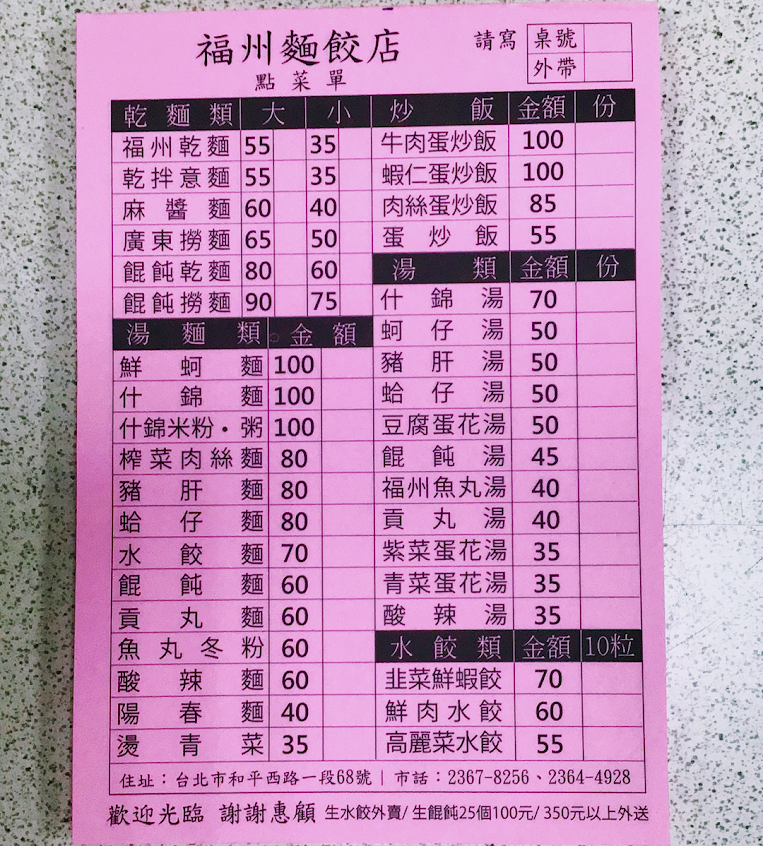 福州麵餃店
點菜單
請寫 桌號
外帶
乾麵類 大 小
福州乾麵 55 35
乾拌意麵 55 35
麻醬麵 60 40
廣東撈麵 65 50
餛飩乾麵 80 60
餛飩撈麵 90 75
湯麵類 金額
鮮蚵麵 100
什錦麵 100
什錦米粉・粥 100
榨菜肉絲麵 80
豬肝麵 80
蛤仔麵 80
水餃麵 70
餛飩麵 60
貢丸麵 60
魚丸冬粉 60
酸辣麵 60
陽春麵 40
燙青菜 35
炒飯 金額 份
牛肉蛋炒飯 100
蝦仁蛋炒飯 100
肉絲蛋炒飯 85
蛋炒飯 55
湯類 金額 份
什錦湯 70
蚵仔湯 50
豬肝湯 50
蛤仔湯 50
豆腐蛋花湯 50
餛飩湯 45
福州魚丸湯 40
貢丸湯 40
紫菜蛋花湯 35
青菜蛋花湯 35
酸辣湯 35
水餃類 金額 10粒
韭菜鮮蝦餃 70
鮮肉水餃 60
高麗菜水餃 55
住址：台北市和平西路一段68號 | 市話：2367-8256、2364-4928
歡迎光臨 謝謝惠顧 生水餃外賣/ 生餛飩25個100元/ 350元以上外送